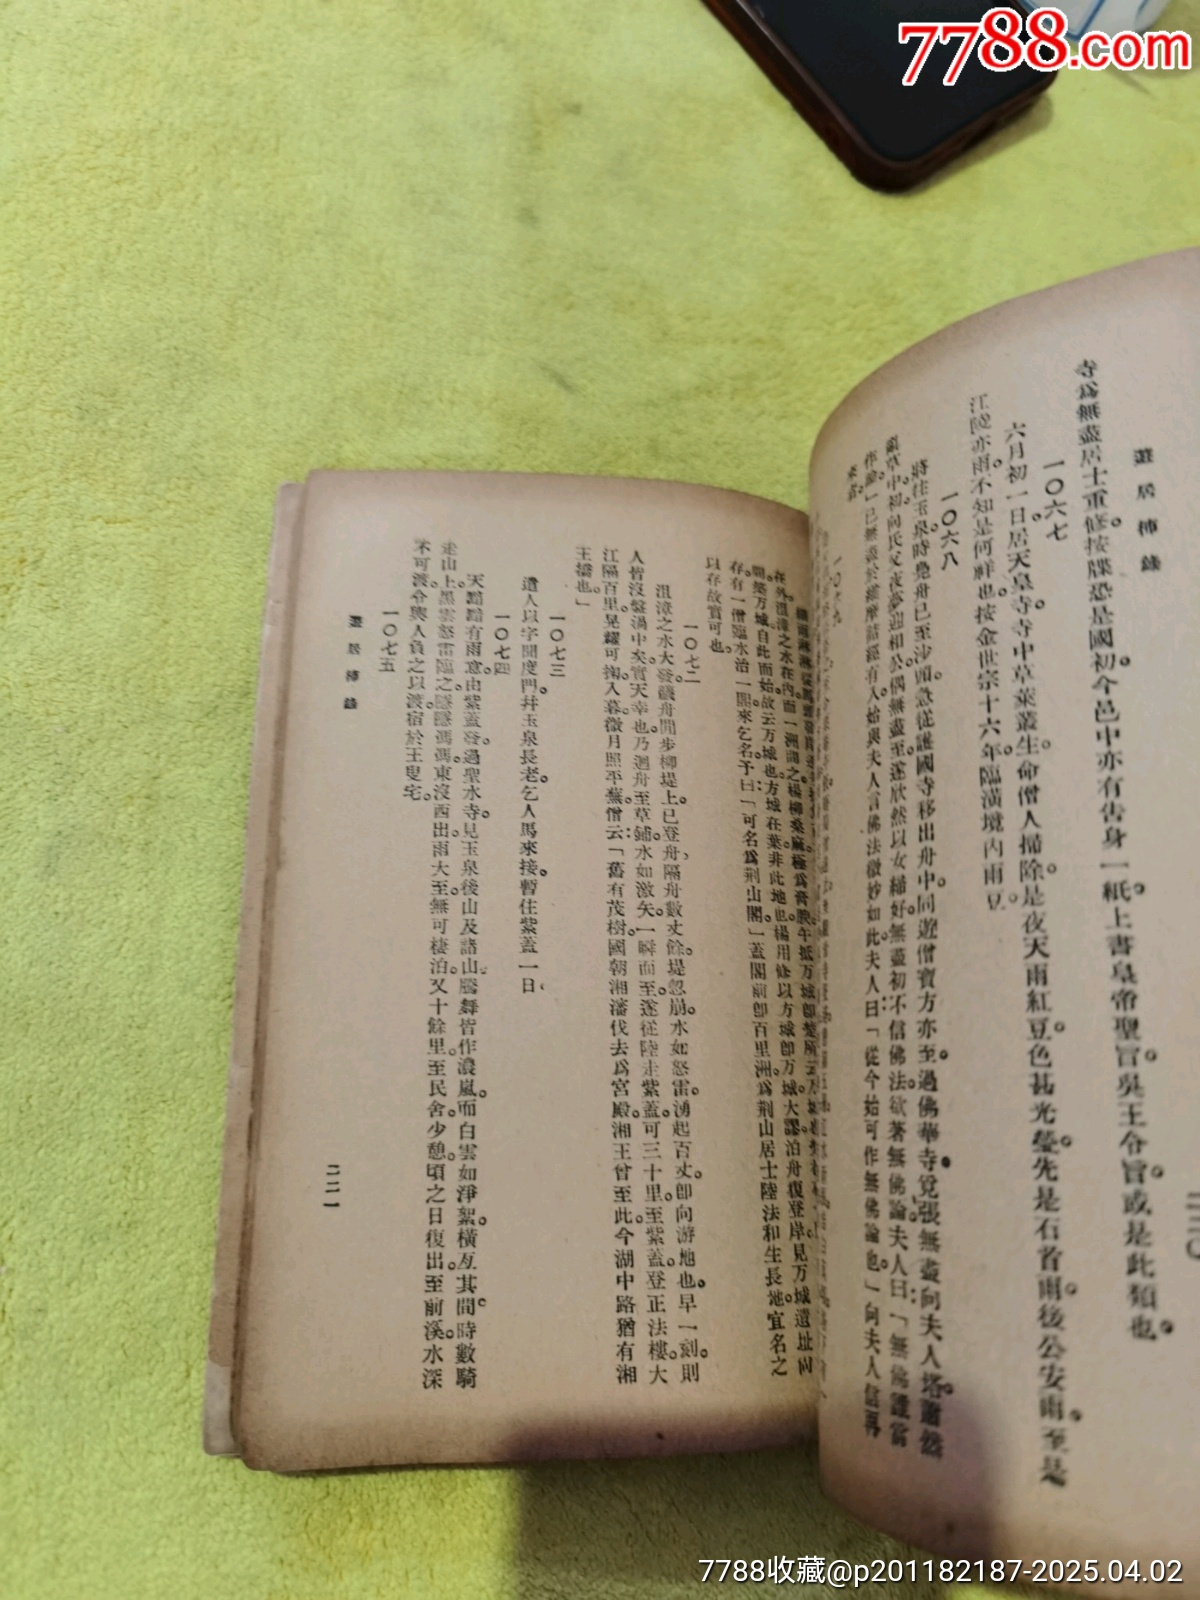 7788.com
遊居柿錄
二二〇
寺爲無盡居士重修。按牒恐是國初。今邑中亦有告身一紙。上書皇帝聖旨。吳王令旨。或是此類也。
一〇六七
六月初一日。居天皇寺。寺中草萊叢生。命僧人掃除。是夜天雨紅豆。色甚光瑩。先是石首雨。後公安雨。至是
江陵亦雨。不知是何祥也。按金世宗十六年。臨潢境內雨豆。
一〇六八
將往玉泉。時覺舟已至沙頭。急從護國寺移出舟中。同遊僧寶方亦至。過佛華寺。覓張無盡向夫人塔。蕭然
蔓草中。初向氏父夜夢迎相公。偶無盡至。遂欣然以女歸。好無盡初不信佛法。欲著無佛論。夫人曰：「無佛誰當
作論。」已無盡於維摩詰經有入。始與夫人言佛法微妙如此。夫人曰：「從今始可作無佛論也。」向夫人信再
來者。
在外。沮漳之水在內。而一洲間之。楊柳桑麻。極爲膏腴。午抵万城。卽楚所云万城
關築万城自此而始。故云万城也。方城在葉。非此地也。楊用修以方城卽万城。大謬。泊舟復登岸。見万城遺址尙
存。有一僧臨水治一閣。來乞名。予曰：「可名爲荆山閣。」蓋閣前卽百里洲。爲荆山居士陸法和生長地。宜名之
以存故實可也。
一〇七二
沮漳之水大發。艤舟閒步柳堤上。已登舟。隔舟數丈餘。堤忽崩。水如怒雷湧起百丈。卽向游地也。早一刻。則
人皆沒盤渦中矣。實天幸也。乃迴舟至草鋪。水如激矢。一瞬而至。遂從陸走紫蓋。可三十里。至紫蓋。登正法樓。大
江隔百里。晃耀可掬。入暮。微月照平蕪。僧云：「舊有茂樹。國朝湘藩伐去爲宮殿。湘王曾至此。今湖中路猶有湘
王搢也。」
一〇七三
遣人以字聞度門幷玉泉長老。乞人馬來接。暫住紫蓋一日。
一〇七四
天黯黯有雨意。由紫蓋發。過聖水寺。見玉泉後山及諸山騰舞。皆作濃嵐。而白雲如淨絮。橫亙其間。時數騎
走山上。黑雲怒雷臨之。隱隱馮馮。東沒西出。雨大至。無可棲泊。又十餘里。至民舍。少憩。頃之日復出。至前溪。水深
不可渡。令輿人負之以渡。宿於王叟宅。
一〇七五
遊居柿錄
二二一
7788收藏@p201182187-2025.04.02